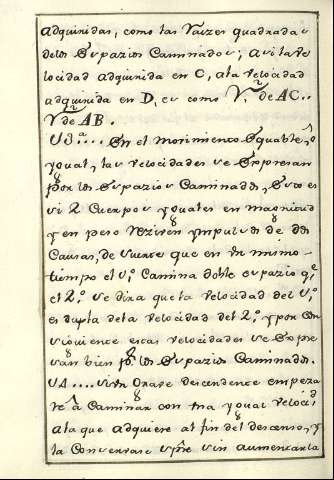 adquiridas, como las Raizes quadradas
delos Espazios Caminados; asi la Ve
locidad adquirida en C, ala velocidad
adquirida en D, es como V, de AC..
V de AB.
U3ª.... En el movimiento Equable, o
ygual, las velocidades se Expresan
por los Espazios Caminados, Esto es
si 2 Cuerpos yguales en magnitud
y en peso reziven ympulsos de dos
Causas, de suerte que en un mismo
tiempo el 1º Camina doble espazio qe
el 2º se dira que la velocidad del 1º
es dupla dela velocidad del 2º y por con
siguiente estas velocidades se Expre
san bien pr los Espazios Caminados.
U4.... si un Grave descendente empeza
re à Caminar con una ygual velocid
ala que adquiere al fin del descenso, y
la Conservase spre sin aumentarla